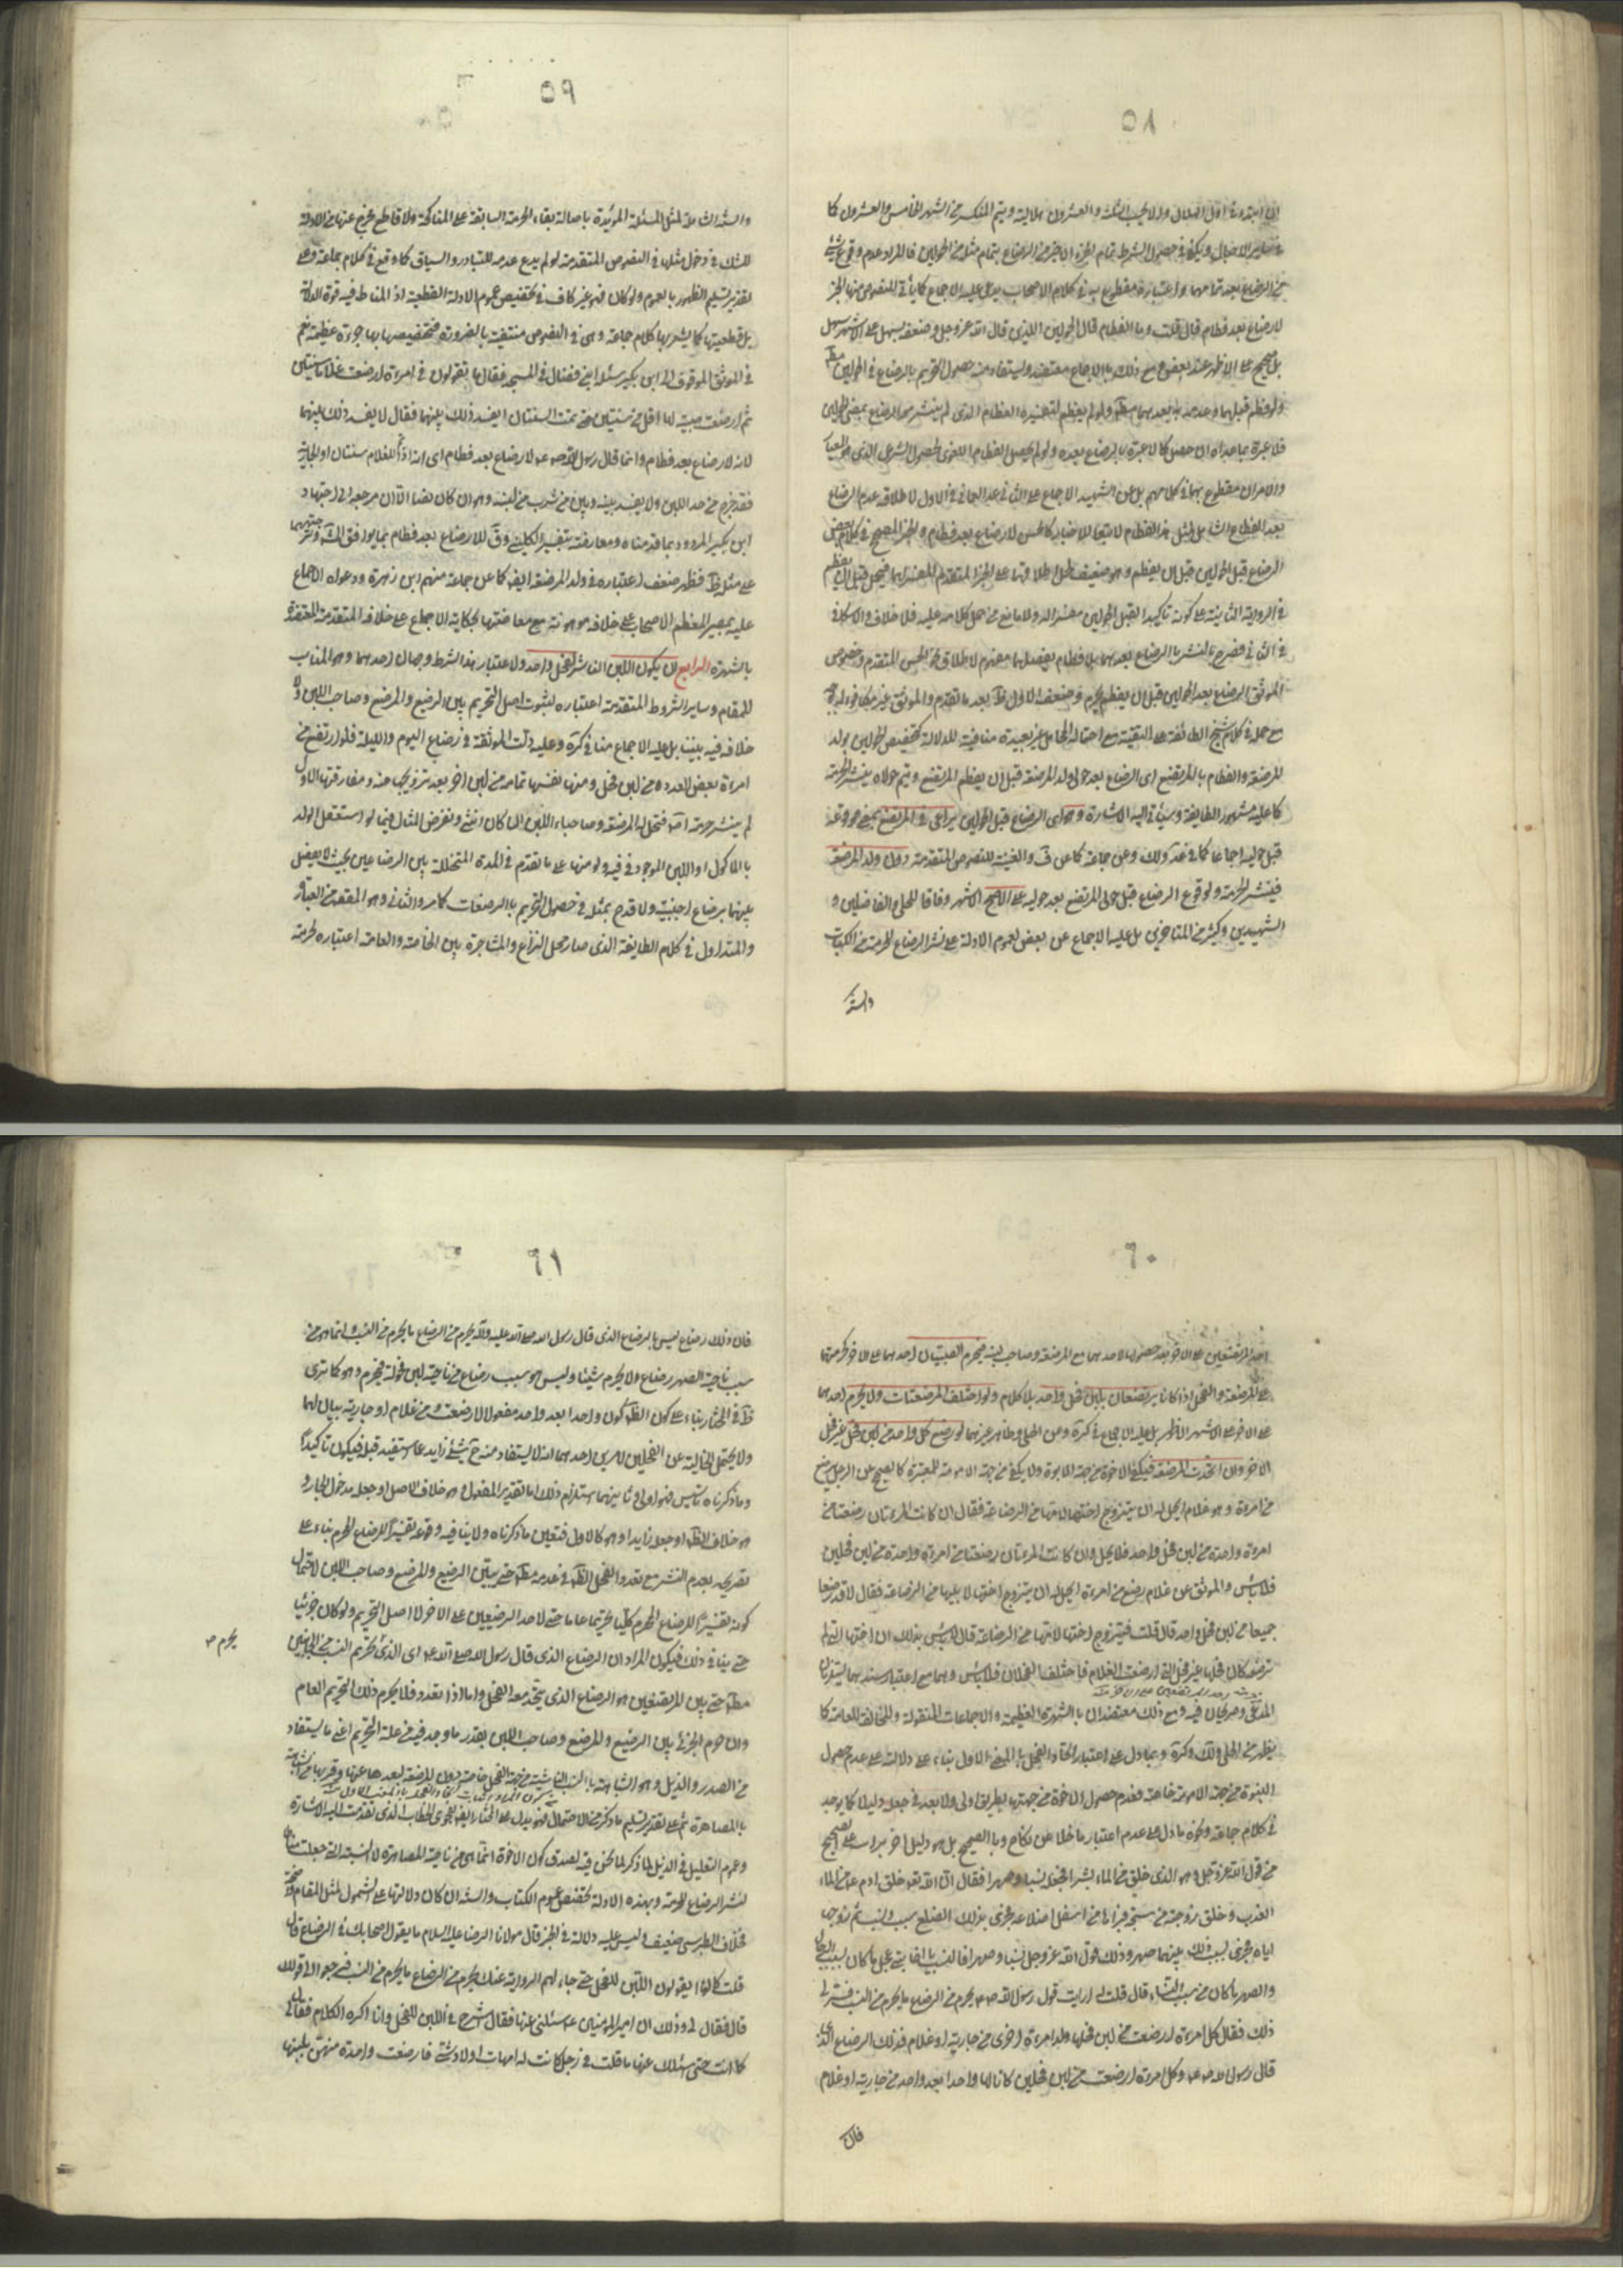 ٥٨
في سائر الاجال ويكفي في حصول الشرط تمام الجزء الاخير من الرضاع بتمام مثله من الحولين فالمراد عدم وقوع شيء
من الرضاع بعد تمامهما واعتباره مقطوع به في كلام الاصحاب بل عليه الاجماع كما يأتي للنصوص منها الخبر
لا رضاع بعد فطام قال قلت وما الفطام قال الحولين اللذين قال الله عز وجل وضعفه بسهل على الاشهر سهل
بل صحيح على الاظهر عند بعض ومع ذلك بالاجماع معتضد ويستفاد منه حصول التحريم بالرضاع في الحولين مط
ولو فطم قبلهما وعدمه بما بعدهما مط ولو لم يفطم لتفسيره الفطام الذي لم ينشر معه الرضاع بمضي الحولين
فلا عبرة بما عداه ان حصل كما لا عبرة بالرضاع بعده ولو لم يحصل الفطام اللغوي لحصول الشرعي الذي هو المعيار
والامران مقطوع بهما في كلامهم بل عن الشهيد الاجماع على الثاني
بعد الفطام الشامل لمثل هذا الفطام لاتباع الاخبار كالحسن لا رضاع بعد فطام
الرضاع قبل الحولين قبل ان يفطم وهو ضعيف لحمل اطلاقها على الخبر المتقدم المفسر لها فيحمل قبل ان يفطم
في الرواية الثانية على كونه تاكيدا لقبل الحولين مفسرا له ولا مانع من حمل كلامه عليه فلا خلاف والاسكافي
في الثاني فصرح بالنشر بالرضاع بعدهما بلا فطام بفصل بينهما
الموثق الرضاع بعد الحولين قبل ان يفطم يحرم وضعف الاول ظ بعد ما تقدم والموثق غير مكافوله
مع حمله في كلام شيخ الطائفة على التقية مع احتماله
للمرضعة والفطام بالمرتضع اي الرضاع بعد حولي ولد المرضعة قبل ان يفطم المرتضع ويتم حولاه ينشر الحرمة
كما عليه مشهور الطائفة وسيأتي اليه الاشارة وهو اي الرضاع قبل الحولين يراعى في المرتضع بمعنى وقوعه
قبل حوليه اجماعا كما في عد ولك وعن جماعة كما عن ف والغنية للنصوص المتقدمة دون ولد المرضعة
فينشر الحرمة لو وقع الرضاع قبل حولي المرتضع بعد حوليه على الاصح الاشهر وفاقا للحلي والفاضلين و
الشهيدين وكثير من المتاخرين بل عليه الاجماع عن بعض لعموم الادلة على نشر الرضاع الحرمة من الكتاب
والسنة
٥٩
والسنة الشاملة لمثل المسئلة المؤيدة باصالة بقاء الحرمة السابقة على المناكحة ولا قاطع يخرج عنها من الادلة
للشك في دخول مثلها في النصوص المتقدمة لو لم يدع عدمه للتبادر والسياق كما وقع في كلام جماعة وعلى
تقدير تسليم الظهور بالعموم ولو كان فهو غير كاف في تخصيص عموم الادلة القطعية اذ المناط فيه قوة الدلالة
بل قطعيتها كما يشعر بها كلام جماعة وهي في النصوص منتفية بالضرورة فتخصيصها بها جرءة عظيمة نعم
في الموثق الموقوف الى ابن بكير سئله ابن فضال في المسجد فقال ما تقولون في امرءة ارضعت غلاما سنتين
ثم ارضعت صبية لها اقل من سنتين حتى تمت السنتان ايفسد ذلك بينهما فقال لا يفسد ذلك بينهما
لانه لا رضاع بعد فطام وانما قال رسول الله صلع لا رضاع بعد فطام اي انه اذا تم للغلام سنتان او الجارية
فقد خرج من حد اللبن ولا يفسد بينه وبين من شرب من لبنه وهو ان كان نصا الا ان مرجعه الى اجتهاد
ابن بكير المردود بما قدمناه ومعارضته بتفسير الكليني وق للا رضاع بعد فطام بما يوافق المشهور
على مثله ظ فظهر ضعف اعتباره في ولد المرضعة ايضا كما عن جماعة منهم ابن زهرة ودعواه الاجماع
عليه بمصير المعظم الاصحاب على خلافه موهونة مع معارضتها لحكاية الاجماع على خلافه المتقدمة المعتضدة
بالشهرة الرابع ان يكون اللبن الناشر لفحل واحد ولاعتبار هذا الشرط وجهان احدهما وهو المناسب
للمقام وساير الشروط المتقدمة اعتباره لثبوت اصل التحريم بين الرضيع والمرضع وصاحب اللبن ولا
خلاف فيه بيننا بل عليه الاجماع منا في كرة وعليه دلت الموثقة في رضاع اليوم والليلة فلو ارتضع من
امرءة بعض العدد من لبن فحل ومنها نفسها تمامه من لبن اخر بعد تزويجها منه ومفارقتها الاول
لم ينشر حرمة اصلا فتحل له المرضعة وصاحبا اللبن ان كان انثى ونفرض المثال فيما لو استقل الولد
بالماكول او اللبن الموجود في فيه ولو منها على ما تقدم في المدة المتخللة بين الرضاعين بحيث لا يفصل
بينهما برضاع اجنبية ولا قدح بمثله في حصول التحريم بالرضعات كما مر والثاني وهو المقصود من العبارة
والمتداول في كلام الطايفة الذي صار محل النزاع والمشاجرة بين الخاصة والعامة اعتباره لحرمة
٦٠
احد المرتضعين على الاخر بعد حصولها لاحدهما مع المرضعة وصاحب لبنه فيحرم الصبيان احدهما على الاخر
على المرضعة والفحل اذا كانا يرتضعان بلبن فحل واحد بلا كلام ولو اختلف المرضعتان ولا يحرم احدهما
على الاخر على الاشهر الاظهر بل عليه الاجماع في كرة وعن الحلي وظاهر غيرهما لو رضع كل واحد من لبن فحل غير فحل
الاخر وان اتحدت المرضعة فيكفي الاخوة من جهة الابوة ولا يكفي من جهة الامومة للمعتبرة كالصحيح عن الرجل يرضع
من امرءة وهو غلام ايحل له ان يتزوج اختها لامها من الرضاعة فقال ان كانت المرءتان رضعتا من
امرءة واحدة من لبن فحل واحد فلا يحل وان كانت المرءتان رضعتا من امرءة واحدة من لبن فحلين
فلا باس والموثق عن غلام رضع من امرءة ايحل له ان يتزوج اختها لابيها من الرضاعة فقال لا قد رضعا
جميعا من لبن فحل واحد قال قلت فيتزوج اختها لامها من الرضاعة قال لا باس بذلك ان اختها التي لم
ترضعه كان فحلها غير فحل التي ارضعت الغلام فاختلف الفحلان فلا باس وهما مع اعتبار سندهما
المدعى وصريحان فيه ومع ذلك معتضدان بالشهرة العظيمة والاجماعات المنقولة والمخالفة للعامة كما
يظهر من الحلي ولك وكرة وبما دل على اعتبار اتحاد الفحل بالمعنى الاول بناء على دلالته على عدم حصول
البنوة من جهة الامومة خاصة فعدم حصول الاخوة من جهتها بطريق اولى ولا بعد في جعله دليلا كما يوجد
في كلام جماعة
من قول الله عز وجل وهو الذي خلق من الماء بشرا فجعله نسبا وصهرا فقال ان الله تعالى خلق ادم من الماء
العذب وخلق زوجته من سنخه فبراها من اسفل اضلاعه فجرى بذلك الضلع سبب ونسب ثم زوجها
اياه فجرى بسبب ذلك بينهما صهر وذلك قول الله عز وجل نسبا وصهرا فالنسب يا اخا بني عجل ما كان بسبب الرجال
والصهر ما كان من سبب النساء قال قلت له ارايت قول رسول الله ص يحرم من الرضاع ما يحرم من النسب فسر لي
ذلك فقال كل امرءة ارضعت من لبن فحلها ولد امرءة اخرى من جارية او غلام فذلك الرضاع الذي
قال رسول الله ص وكل امرءة ارضعت من لبن فحلين كانا لها واحدا بعد واحد من جارية او غلام
فان
٦١
فان ذلك رضاع ليس بالرضاع الذي قال رسول الله صلى الله عليه وآله يحرم من الرضاع ما يحرم من النسب وانما هو من
سبب ناحية الصهر رضاع ولا يحرم شيئا وليس هو سبب رضاع من ناحية لبن فحولة فيحرم وهو كما ترى
ظ في المختار بناء على كون الظ كون واحدا بعد واحد مفعولا لارضعت ومن غلام او جارية بيان لهما
ولا يحتمل الحالية عن الفحلين
وما ذكرناه تاسيس فهو اولى
هو خلاف الظ او جعله زايدا وهو كالاول فتعين ما ذكرناه ولا ينافيه وقوعه تفسيرا للرضاع المحرم بناء على
تصريحه بعدم النشر مع تعدد الفحل الظ في عدمه مط حتى بين الرضيع والمرضع وصاحب اللبن لاحتمال
كونه تفسيرا للرضاع المحرم كليا تحريما عاما حتى لاحد الرضيعين على الاخر لا اصل التحريم ولو كان جزئيا
حتى ينافي ذلك فيكون المراد ان الرضاع الذي قال رسول الله صلى الله عليه
يحرم ص
مط حتى بين المرتضعين هو الرضاع الذي يتحد معه الفحل واما اذا تعدد فلا يحرم ذلك التحريم العام
وان حرم الجزئي بين الرضيع والمرضع وصاحب اللبن بقدر ما وجد فيه من علة التحريم
بالمصاهرة ثم على تقدير تسليم ما ذكر من الاحتمال فهو يدل على المختار ايضا بفحوى الخطاب الذي تقدمت اليه الاشارة
لنشر الرضاع الحرمة وبهذه الادلة يخصص عموم الكتاب والسنة ان كان دلالتها على الشمول لمثل المقام
فخلاف الطبرسي ضعيف وليس عليه دلالة في الخبر قال مولانا الرضا عليه السلام ما يقول اصحابك في الرضاع قال
قلت كانوا يقولون اللبن للفحل حتى جاءتهم الرواية عنك يحرم من الرضاع ما يحرم من النسب فرجعوا الى قولك
قال فقال لي وذلك ان امير المؤمنين ع سئلني عنها فقال اشرح لي اللبن للفحل وانا اكره الكلام فقال لي
كما انت حتى اسئلك عنها ما قلت في رجل كانت له امهات اولاد شتى فارضعت واحدة منهن بلبنها